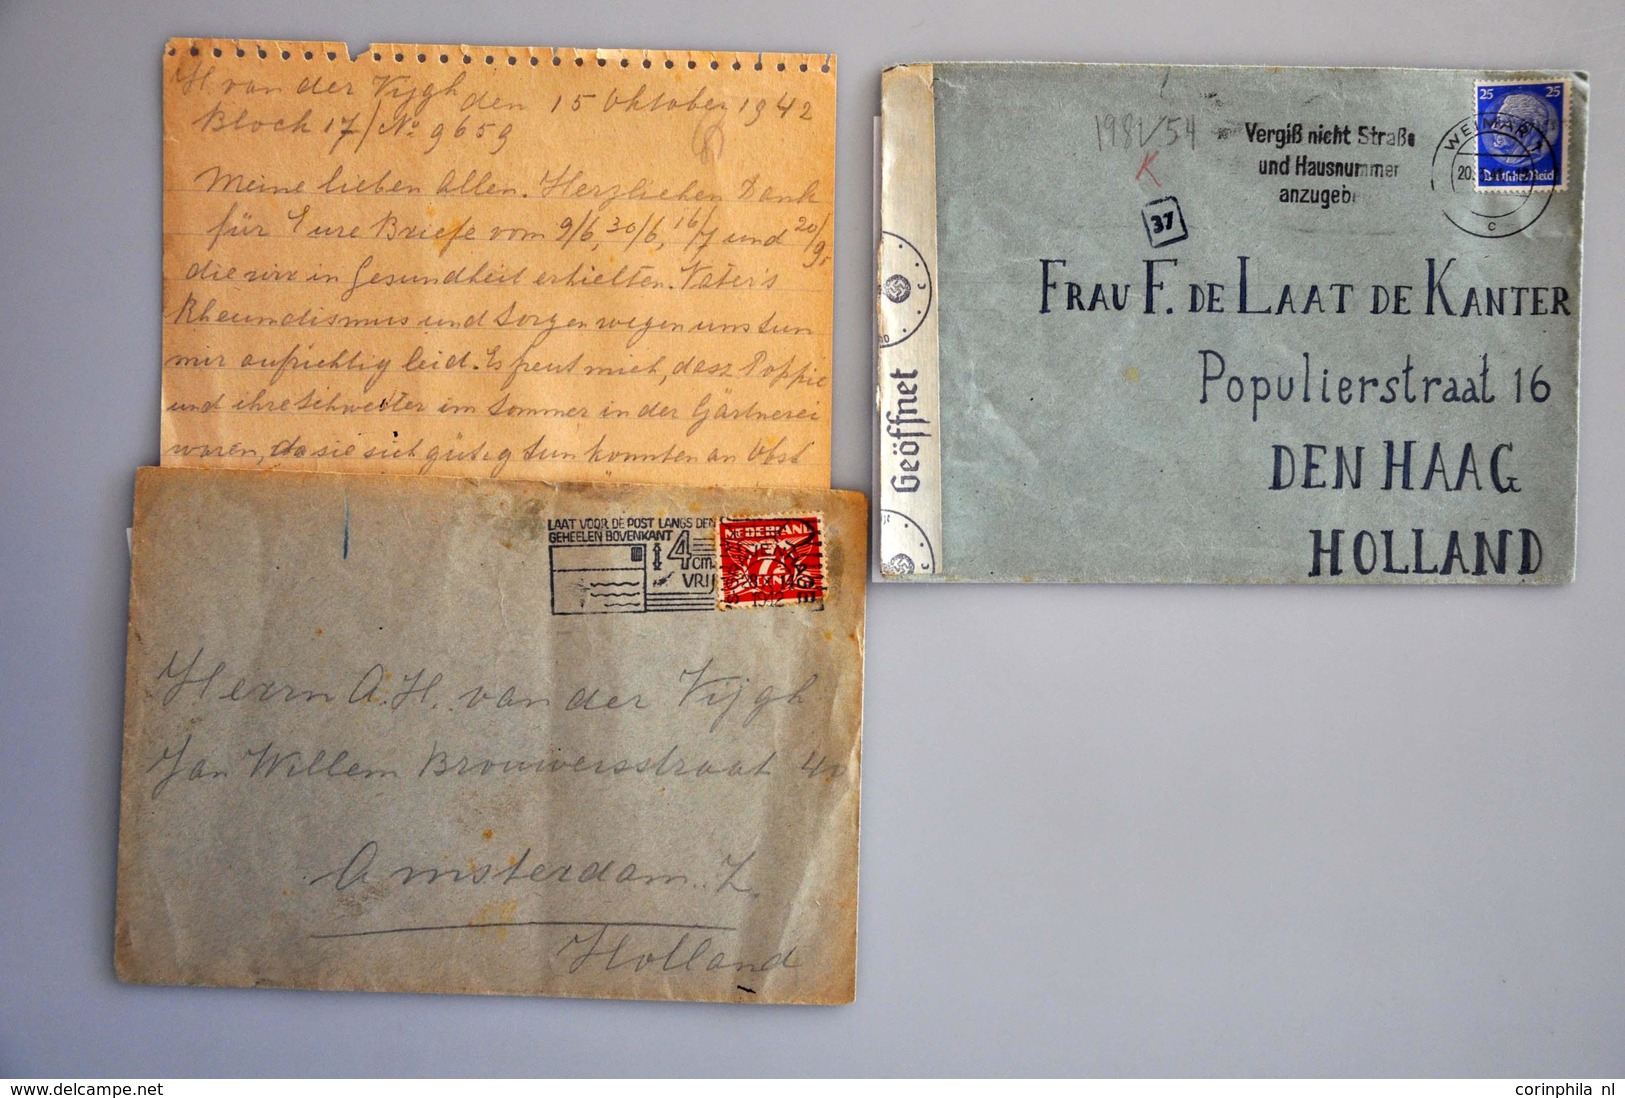 H van der Vijgh den 15 Oktober 1942
Block 17/ No 9659
Meine lieben Allen. Herzlichen Dank
für Eure Briefe vom 9/6, 30/6, 16/7 und 20/9,
die wir in Gesundheit erhielten. Vater's
Rheumatismus und Sorgen wegen uns tun
mir aufrichtig leid. Es freut mich, dasz Poppie
und ihre Schwester im Sommer in der Gärtnerei
waren, da sie sich gütig tun konnten an Obst
LAAT VOOR DE POST LANGS DEN
GEHEELEN BOVENKANT
4 cm.
VRIJ
NEDERLAND
7½
1942
Herrn A. H. van der Vijgh
Jan Willem Brouwersstraat
Amsterdam. Z.
Holland
Geöffnet
1981/54
K
37
Vergiß nicht Straße
und Hausnummer
anzugeb
WEIMAR 1
20.
c
25 25
Deutsches Reich
FRAU F. DE LAAT DE KANTER
Populierstraat 16
DEN HAAG
HOLLAND
corinphila nl